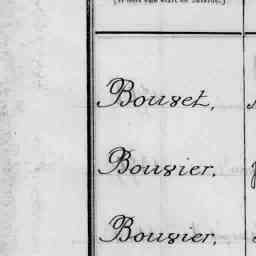 Bouzet,
Bouzier,
Bouzier,